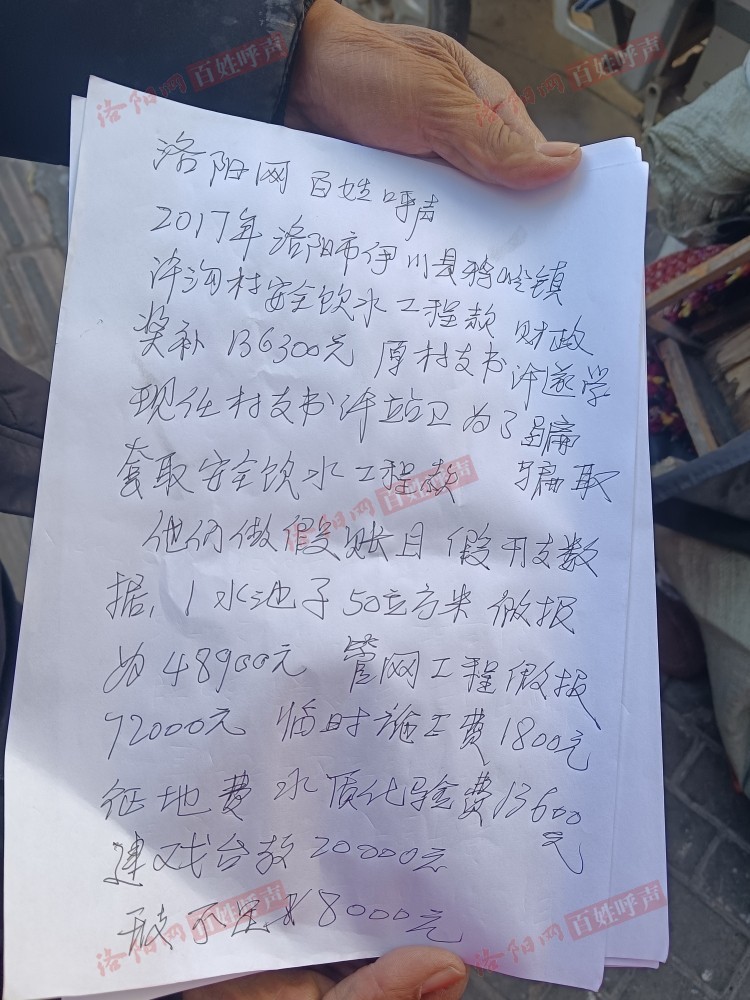 洛阳网 百姓呼声
2017年洛阳市伊川县鸦岭镇
许沟村安全饮水工程款 财政
奖补 136300元 原村支书许遂学
现任村支书许站卫为了骗
套取安全饮水工程款 骗取
他们做假账目 假开支数
据,1水池子50立方米做报
为48900元 管网工程做报
72000元 临时施工费1800元
征地费 水质化验费13600
元
建戏台款20000元
不足 8000元
洛阳网 百姓呼声
洛阳网 百姓呼声
洛阳网 百姓呼声
洛阳网 百姓呼声
洛阳网 百姓呼声